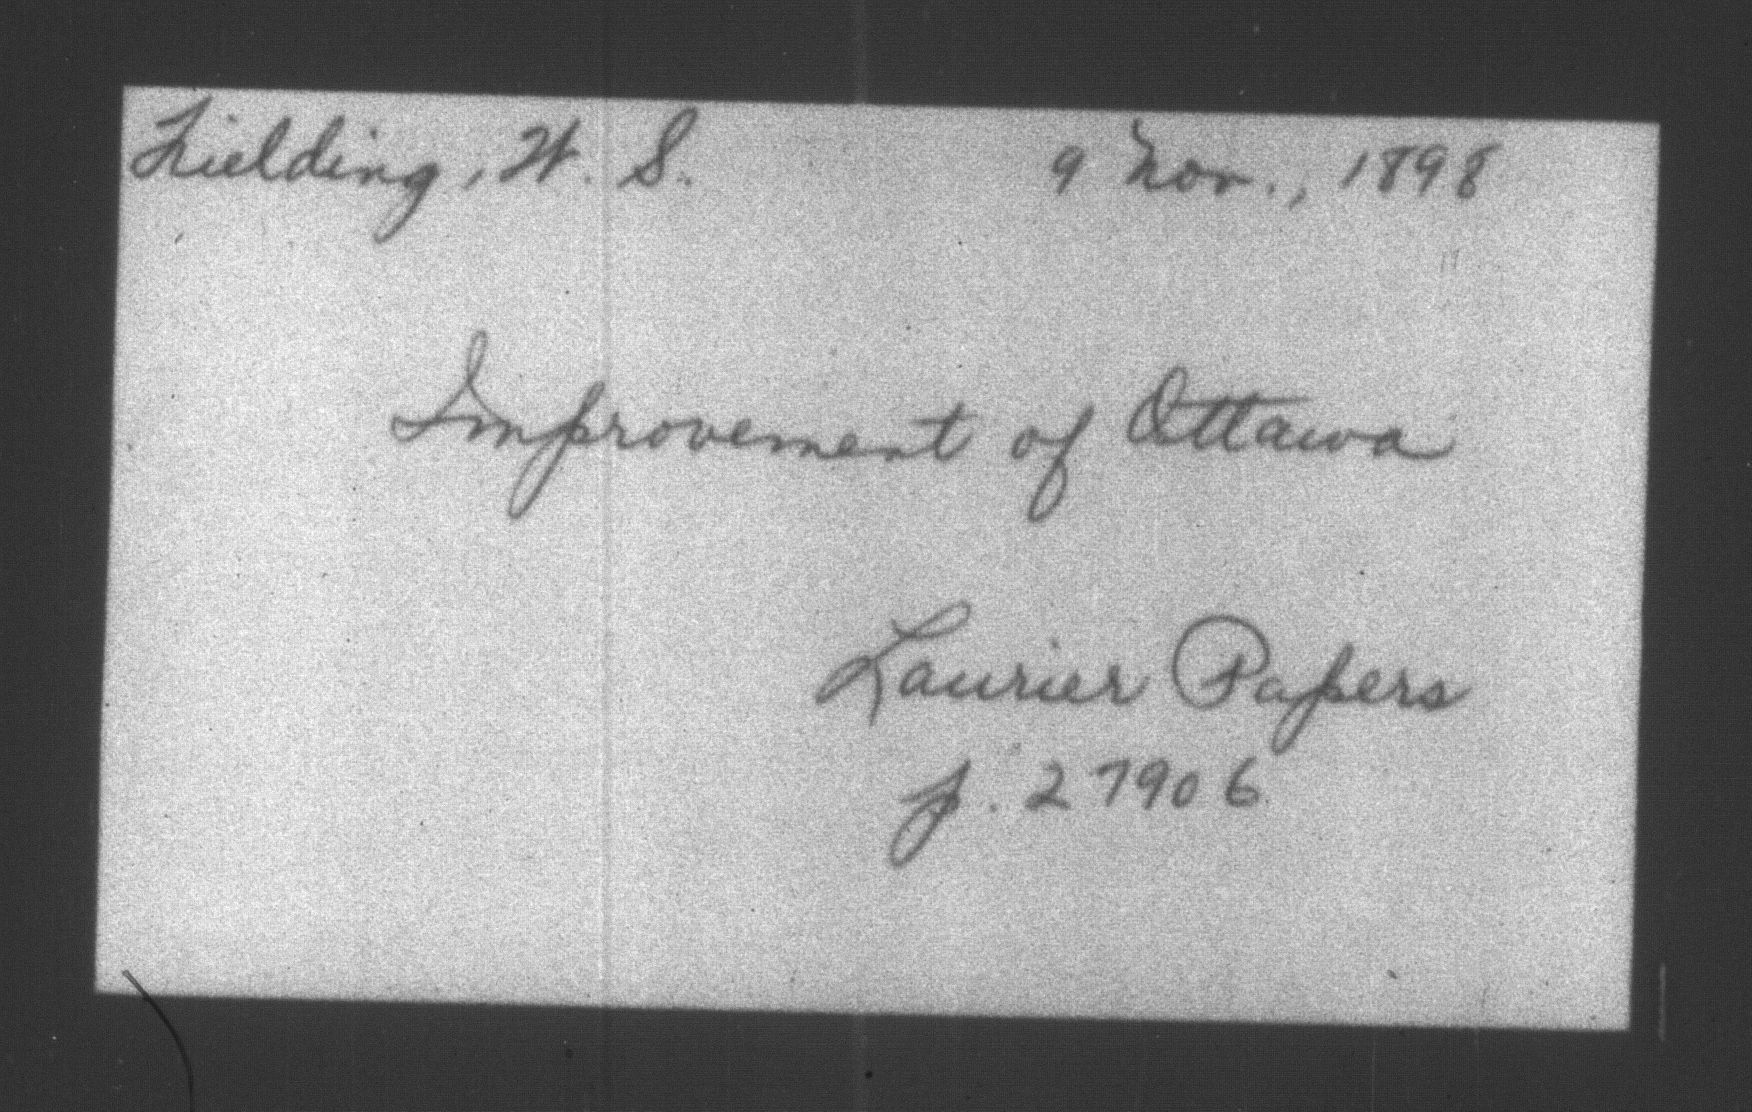 Fielding, W. S. 9 Nov., 1898
Improvement of Ottawa
Laurier Papers
p. 27906